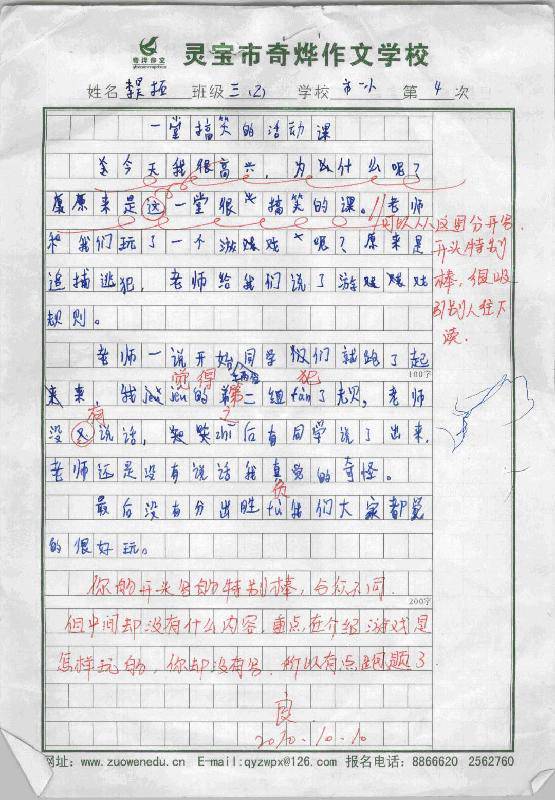 灵宝市奇烨作文学校
姓名 班级三(2) 学校 市一小 第 4 次
一堂搞笑的活动课
今天我很高兴，为什么呢？
原来是这一堂很搞笑的课。老师
可以从这里分开写，
和我们玩了一个游戏呢？原来是
开头特别
追捕逃犯，老师给我们说了游戏
棒，很吸
规则。
引别人往下
读.
老师一说开始同学们就跑了起
100字
觉得 犯
来，我jue的第二组fan了规，老师
有 之
没说话，短笑zhi后有同学说了出来，
老师还是没有说话我真觉的奇怪。
负
最后没有分出胜fu我们大家都觉
的很好玩。
你的开头写的特别棒，与众不同.
200字
但中间却没有什么内容，重点在介绍游戏是
怎样玩的，你却没有写，所以有点跑题了
良
2010.10.10
网址：www.zuowenedu.cn E-mail:qyzwpx@126.com 报名电话：8866620 2562760